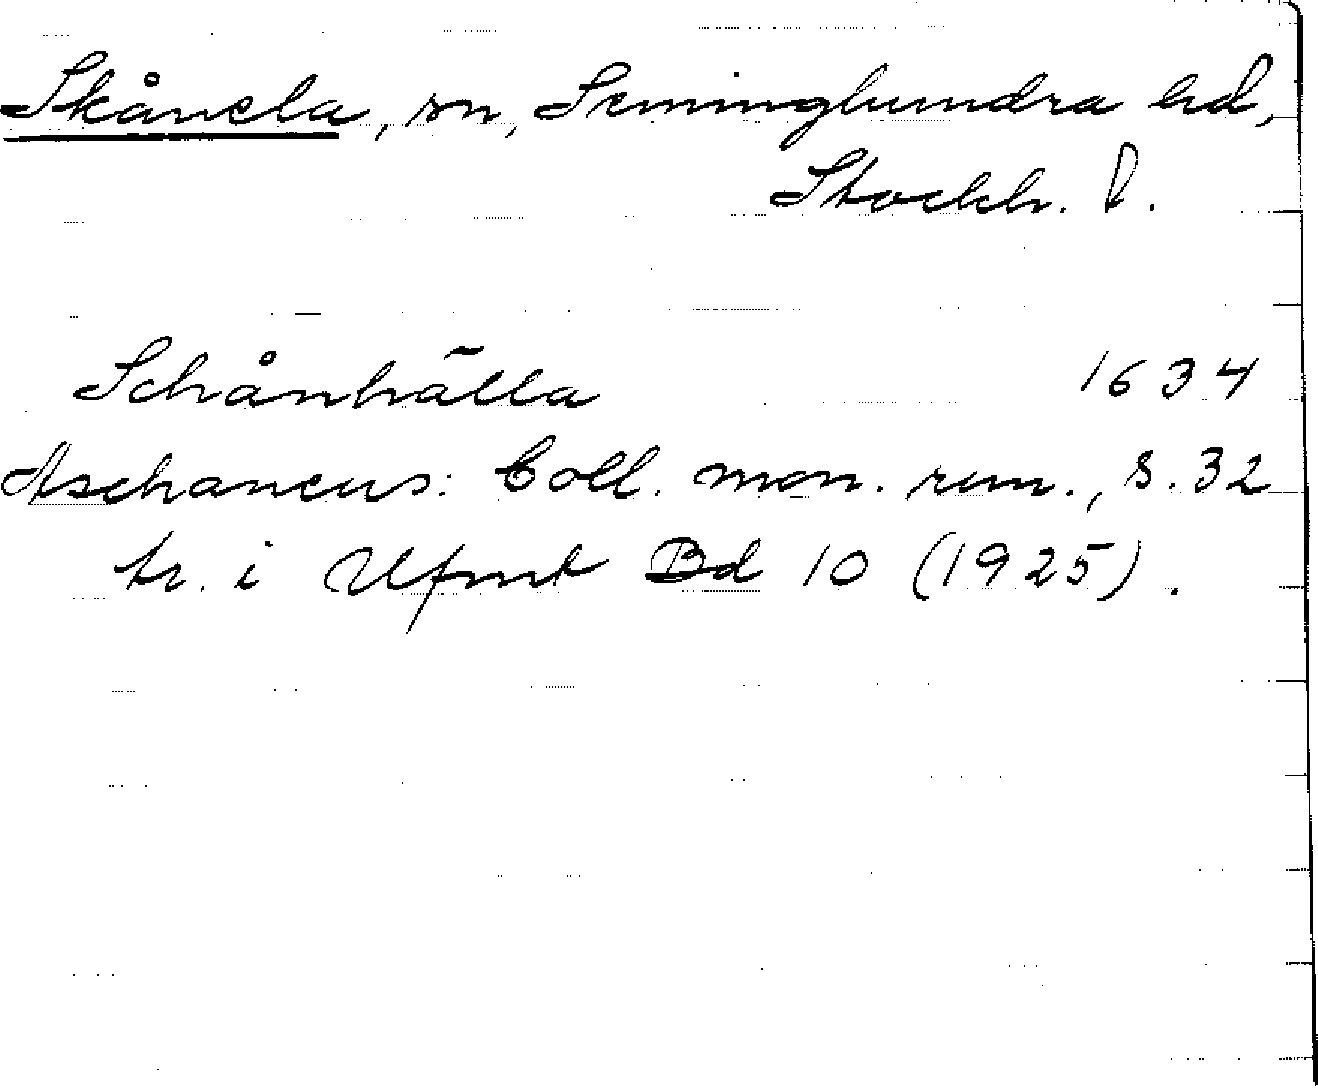 Skånela, sn, Seminghundra hd,
Stockh. l.
Schånhãlla 1634
Aschaneus: Coll. mon. run., s. 32
tr. i Ufmt Bd 10 (1925).